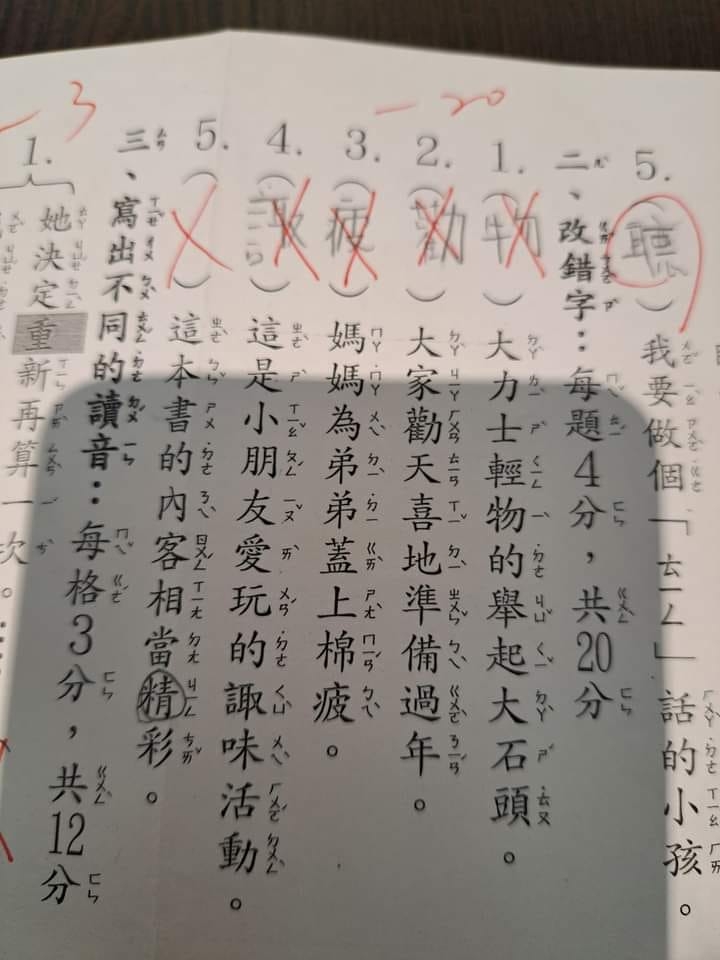 5.（聽）我要做個「ㄊㄧㄥ」話的小孩。
二、改錯字：每題4分，共20分
－20
1.（物）大力士輕物的舉起大石頭。
2.（勸）大家勸天喜地準備過年。
3.（疲）媽媽為弟弟蓋上棉疲。
4.（諏）這是小朋友愛玩的諏味活動。
5.（）這本書的內客相當精彩。
三、寫出不同的讀音：每格3分，共12分
－3
1.
她決定重新再算一次。